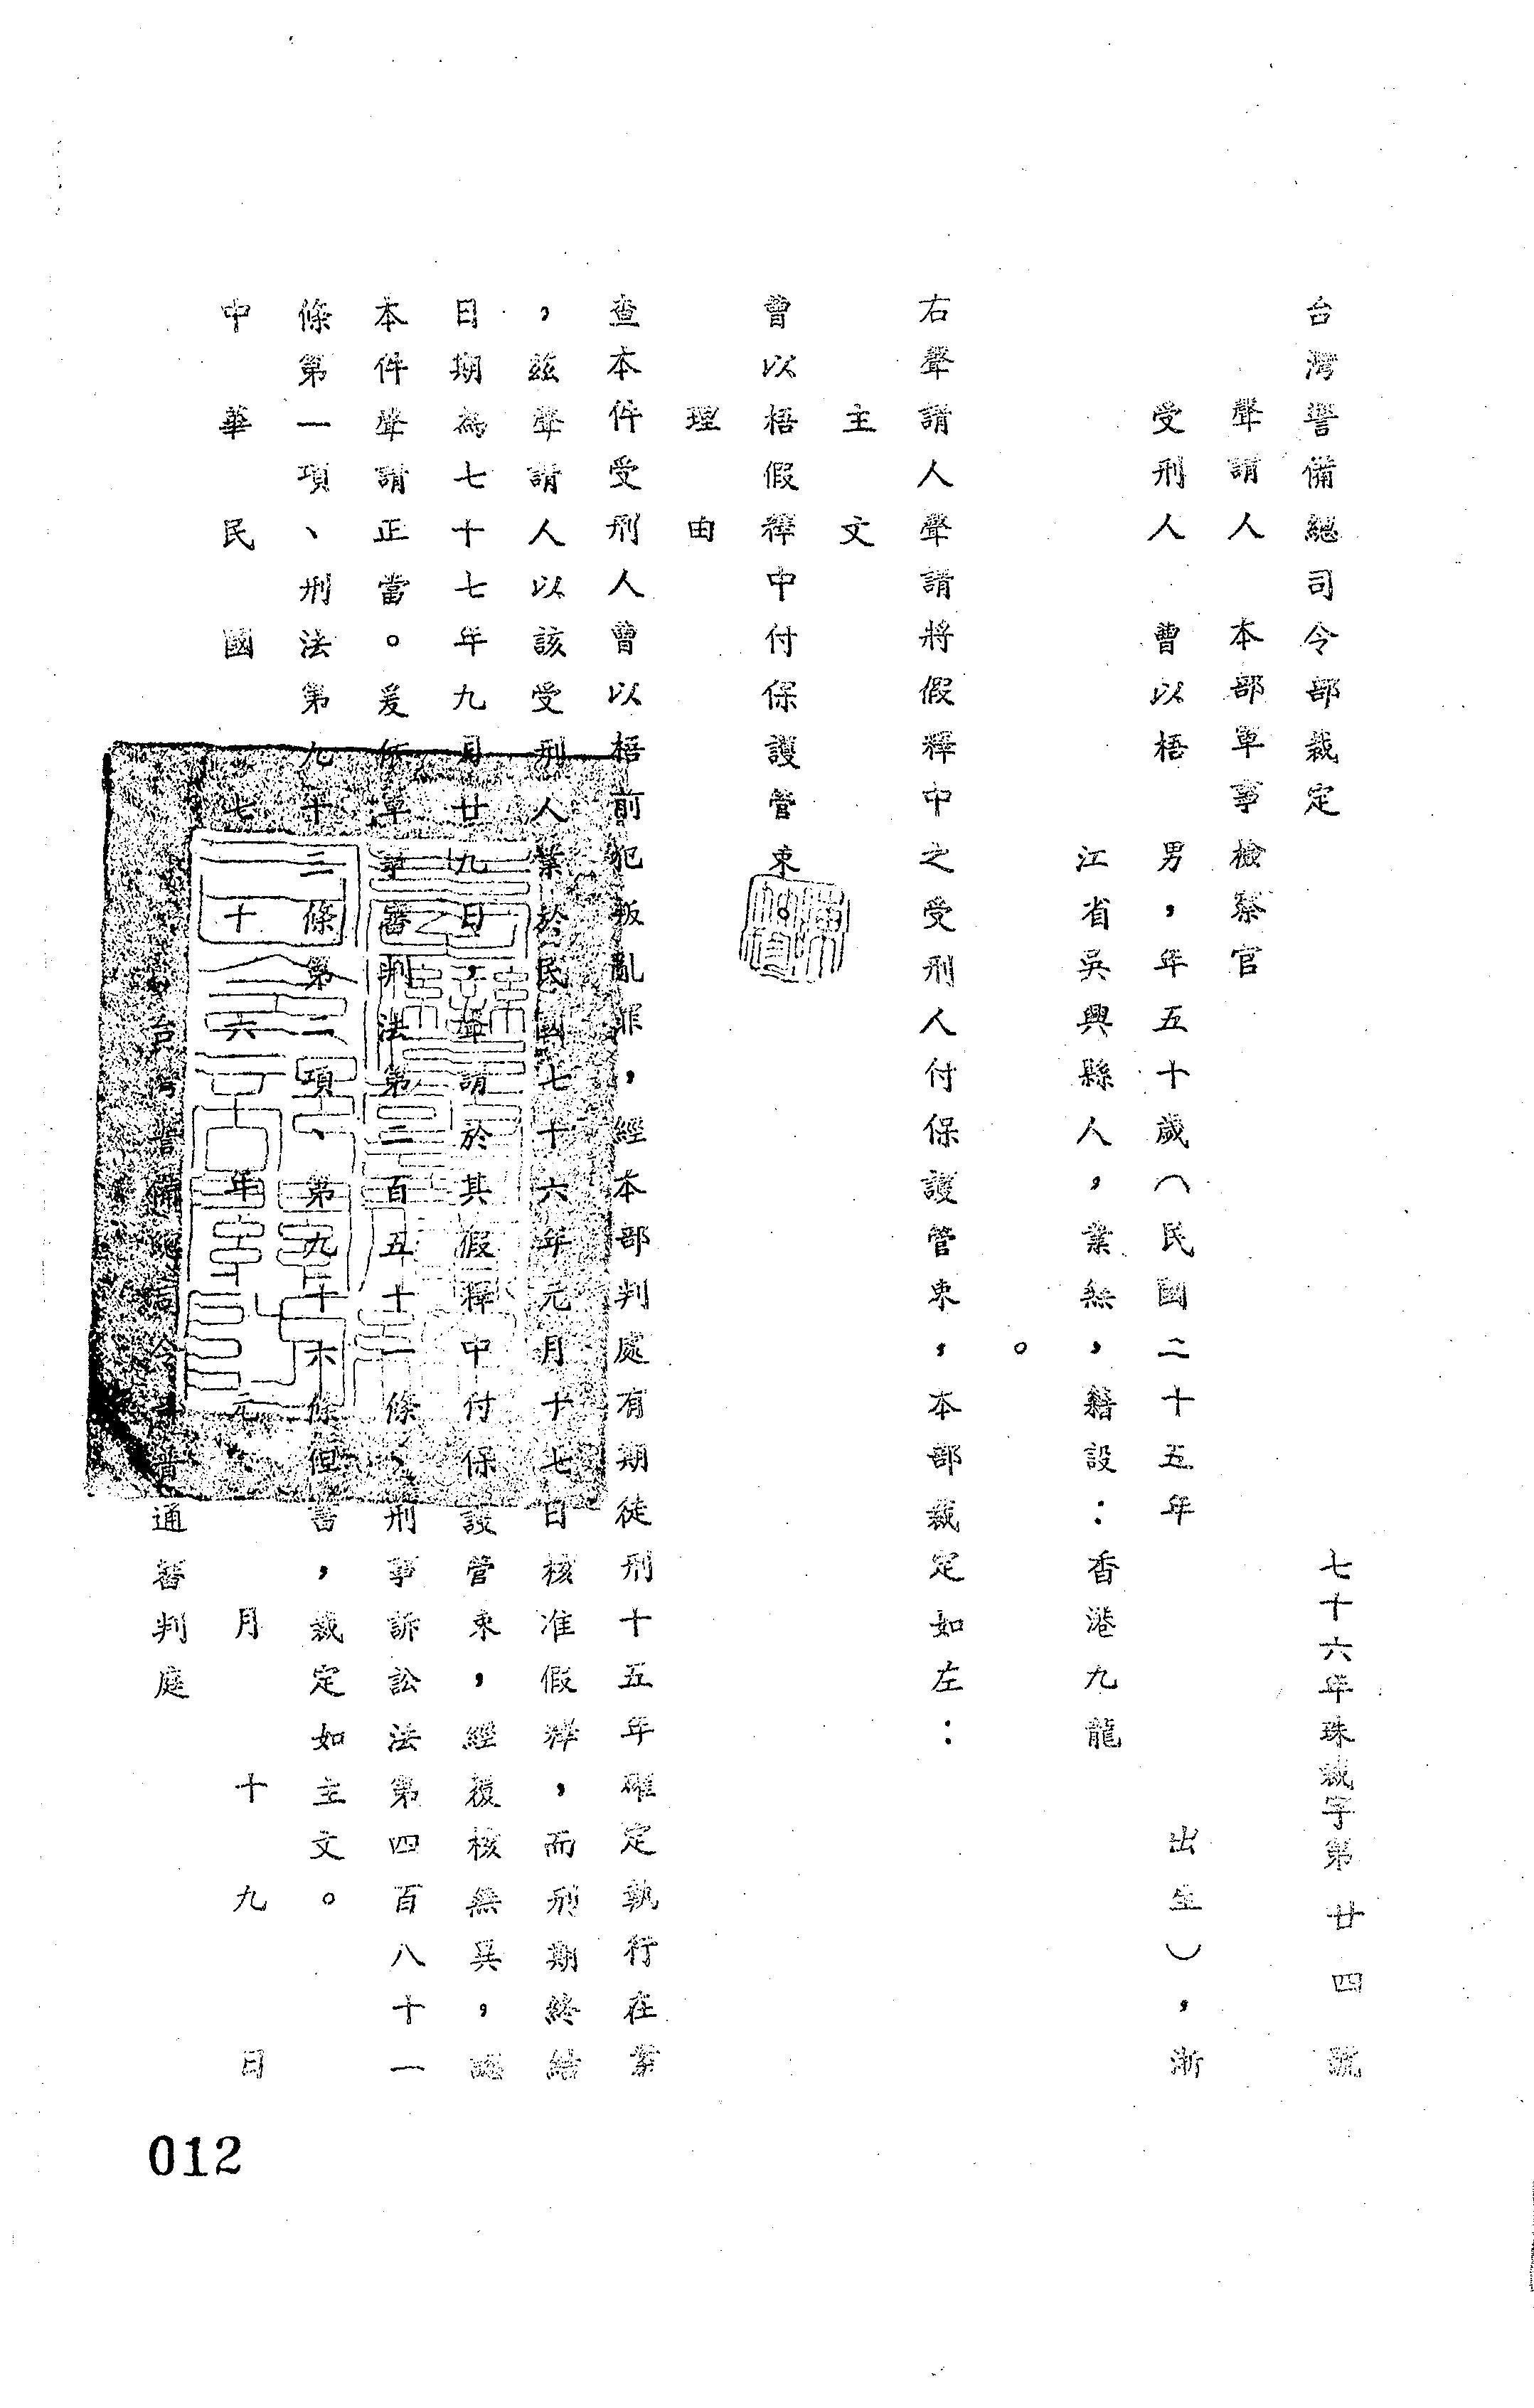 台灣警備總司令部裁定
七十六年珠裁字第廿四號
聲請人　本部軍事檢察官
受刑人　曹以梧　男，年五十歲（民國二十五年出生），浙
江省吳興縣人，業無，籍設：香港九龍
。
右聲請人聲請將假釋中之受刑人付保護管束，本部裁定如左：
主文
曹以梧假釋中付保護管束
理由
查本件受刑人曹以梧前犯叛亂罪，經本部判處有期徒刑十五年確定執行在案
，茲聲請人以該受刑人業於民國七十六年元月十七日核准假釋，而刑期終結
日期為七十七年九月廿九日，聲請於其假釋中付保護管束，經覆核無異，認
本件聲請正當。爰依軍事審判法第二百五十一條、刑事訴訟法第四百八十一
條第一項、刑法第九十三條第二項、第九十六條但書，裁定如主文。
中華民國七十六年元月十九日
台灣警備總司令部普通審判庭
012